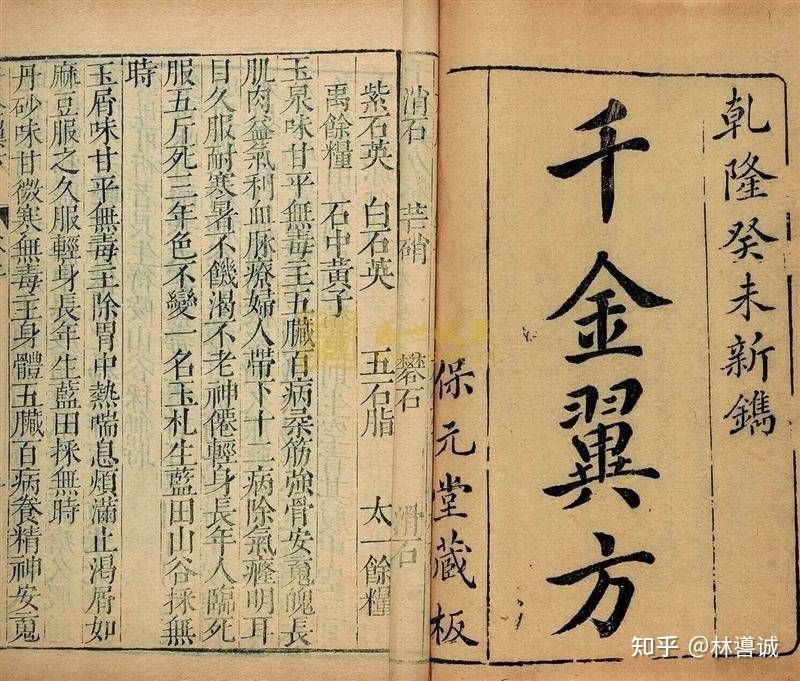 乾隆癸未新鐫
千金翼方
保元堂藏板
消石　芒硝　礬石　滑石
紫石英　白石英　五石脂　太一餘糧
禹餘糧　石中黃子
玉泉味甘平無毒主五臟百病柔筋強骨安䰟魄長
肌肉益氣利血脉療婦人帶下十二病除氣癃明耳
目久服耐寒暑不饑渴不老神僊輕身長年人臨死
服五斤死三年色不變一名玉札生藍田山谷採無
時
玉屑味甘平無毒主除胃中熱喘息煩滿止渴屑如
麻豆服之久服輕身長年生藍田採無時
丹砂味甘微寒無毒主身體五臟百病養精神安䰟
知乎 @林遵诚